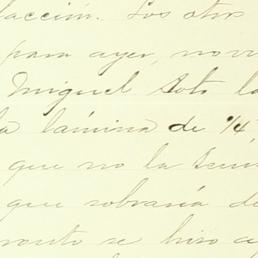 facción. Los otro
para ayer, no vi
Miguel Soto la
la lámina de 1/4,
que no la
que sobraría de
pronto se hizo